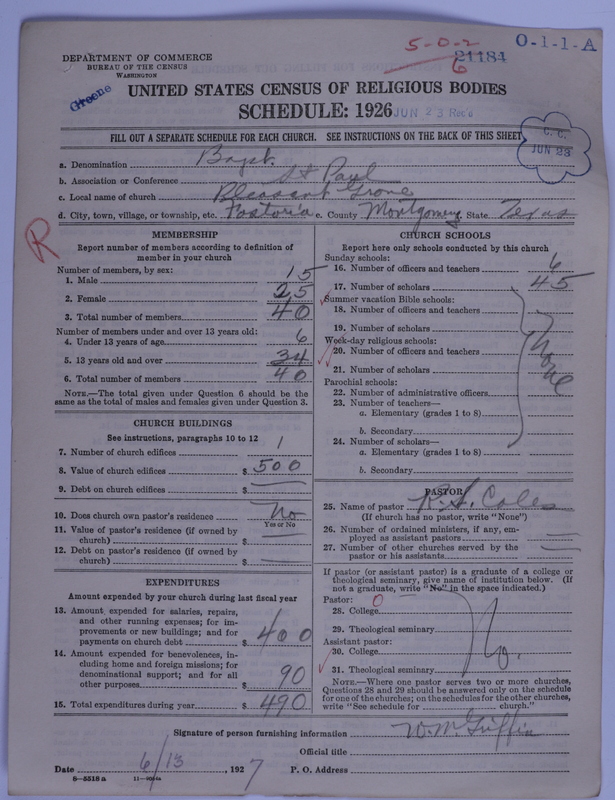 5-0-2
0-1-1-A
21184
6
DEPARTMENT OF COMMERCE
BUREAU OF THE CENSUS
WASHINGTON
Greene
UNITED STATES CENSUS OF RELIGIOUS BODIES
SCHEDULE: 1926
JUN 23 Rec'd
FILL OUT A SEPARATE SCHEDULE FOR EACH CHURCH. SEE INSTRUCTIONS ON THE BACK OF THIS SHEET
C. C.
JUN 23
a. Denomination Bapt.
b. Association or Conference St Paul
c. Local name of church Pleasant Grove
d. City, town, village, or township, etc. Fostoria e. County Montgomery State Texas
R
MEMBERSHIP
Report number of members according to definition of
member in your church
Number of members, by sex:
1. Male 15
2. Female 25
3. Total number of members 40
Number of members under and over 13 years old:
4. Under 13 years of age 6
5. 13 years old and over 34
6. Total number of members 40
NOTE.—The total given under Question 6 should be
same as the total of males and females given under Question 3.
CHURCH BUILDINGS
See instructions, paragraphs 10 to 12
7. Number of church edifices 1
8. Value of church edifices $ 500
9. Debt on church edifices $
10. Does church own pastor's residence No
Yes or No
11. Value of pastor's residence (if owned by
church) $
12. Debt on pastor's residence (if owned by
church) $
EXPENDITURES
Amount expended by your church during last fiscal year
13. Amount expended for salaries, repairs,
and other running expenses; for im-
provements or new buildings; and for
payments on church debt $ 400
14. Amount expended for benevolences, in-
cluding home and foreign missions; for
denominational support; and for all
other purposes $ 90
15. Total expenditures during year $ 490
CHURCH SCHOOLS
Report here only schools conducted by this church
Sunday schools:
16. Number of officers and teachers 6
17. Number of scholars 45
Summer vacation Bible schools:
18. Number of officers and teachers
19. Number of scholars
Week-day religious schools:
20. Number of officers and teachers
21. Number of scholars
None
Parochial schools:
22. Number of administrative officers
23. Number of teachers—
a. Elementary (grades 1 to 8)
b. Secondary
24. Number of scholars—
a. Elementary (grades 1 to 8)
b. Secondary
PASTOR
25. Name of pastor R. S. Coles
(If church has no pastor, write "None")
26. Number of ordained ministers, if any, em-
ployed as assistant pastors
27. Number of other churches served by the
pastor or his assistants
If pastor (or assistant pastor) is a graduate of a college or
theological seminary, give name of institution below. (If
not a graduate, write "No" in the space indicated.)
Pastor: 0
28. College
29. Theological seminary
No.
Assistant pastor:
30. College
31. Theological seminary
NOTE.—Where one pastor serves two or more churches,
Questions 28 and 29 should be answered only on the schedule
for one of the churches; on the schedules for the other churches,
write "See schedule for church."
Signature of person furnishing information W. M. Griffin
Official title
Date 6/13, 1927 P. O. Address